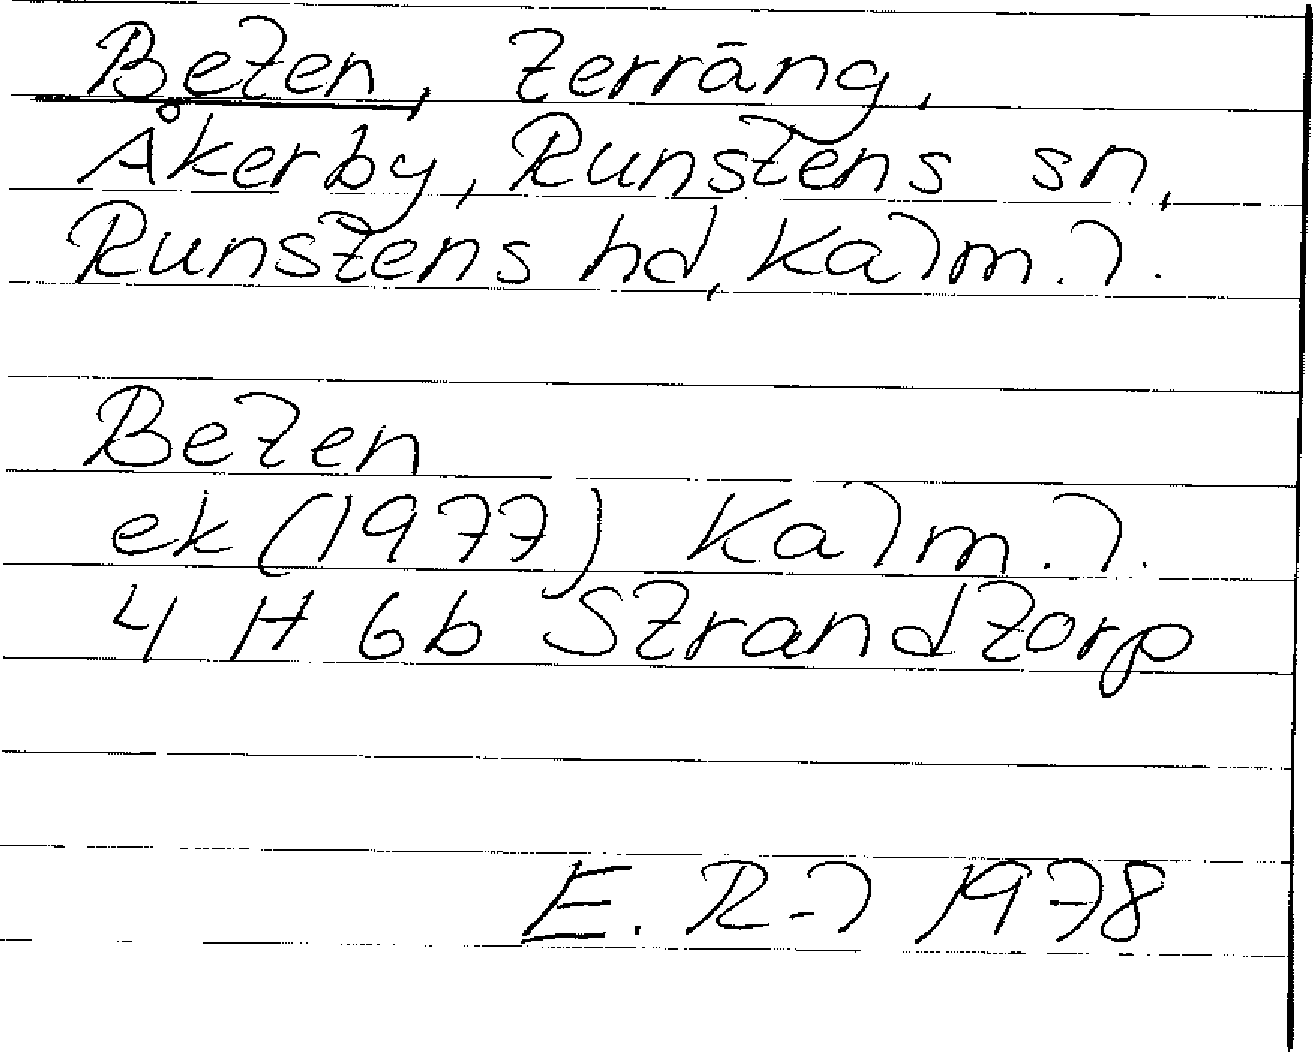 Beten, terräng,
Åkerby, Runstens sn,
Runstens hd, Kalm. l.
Beten
ek (1977) Kalm. l.
4 H 6b Strandtorp
E. R-l 1978